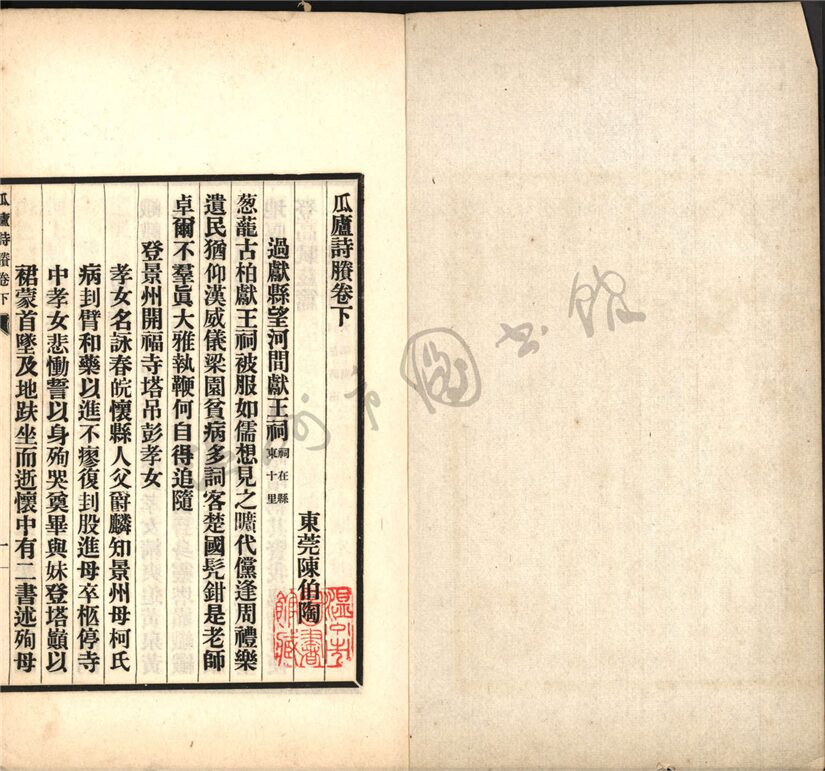 瓜廬詩賸卷下
東莞陳伯陶
過獻縣望河間獻王祠祠在縣東十里
葱蘢古柏獻王祠被服如儒想見之曠代儻逢周禮樂
遺民猶仰漢威儀梁園貧病多詞客楚國髡鉗是老師
卓爾不羣眞大雅執鞭何自得追隨
登景州開福寺塔吊彭孝女
孝女名詠春皖懷縣人父爵麟知景州母柯氏
病刲臂和藥以進不瘳復刲股進母卒柩停寺
中孝女悲慟誓以身殉哭奠畢與妹登塔巔以
裙蒙首墜及地趺坐而逝懷中有二書述殉母
瓜廬詩賸卷下
一
溫州市圖書館